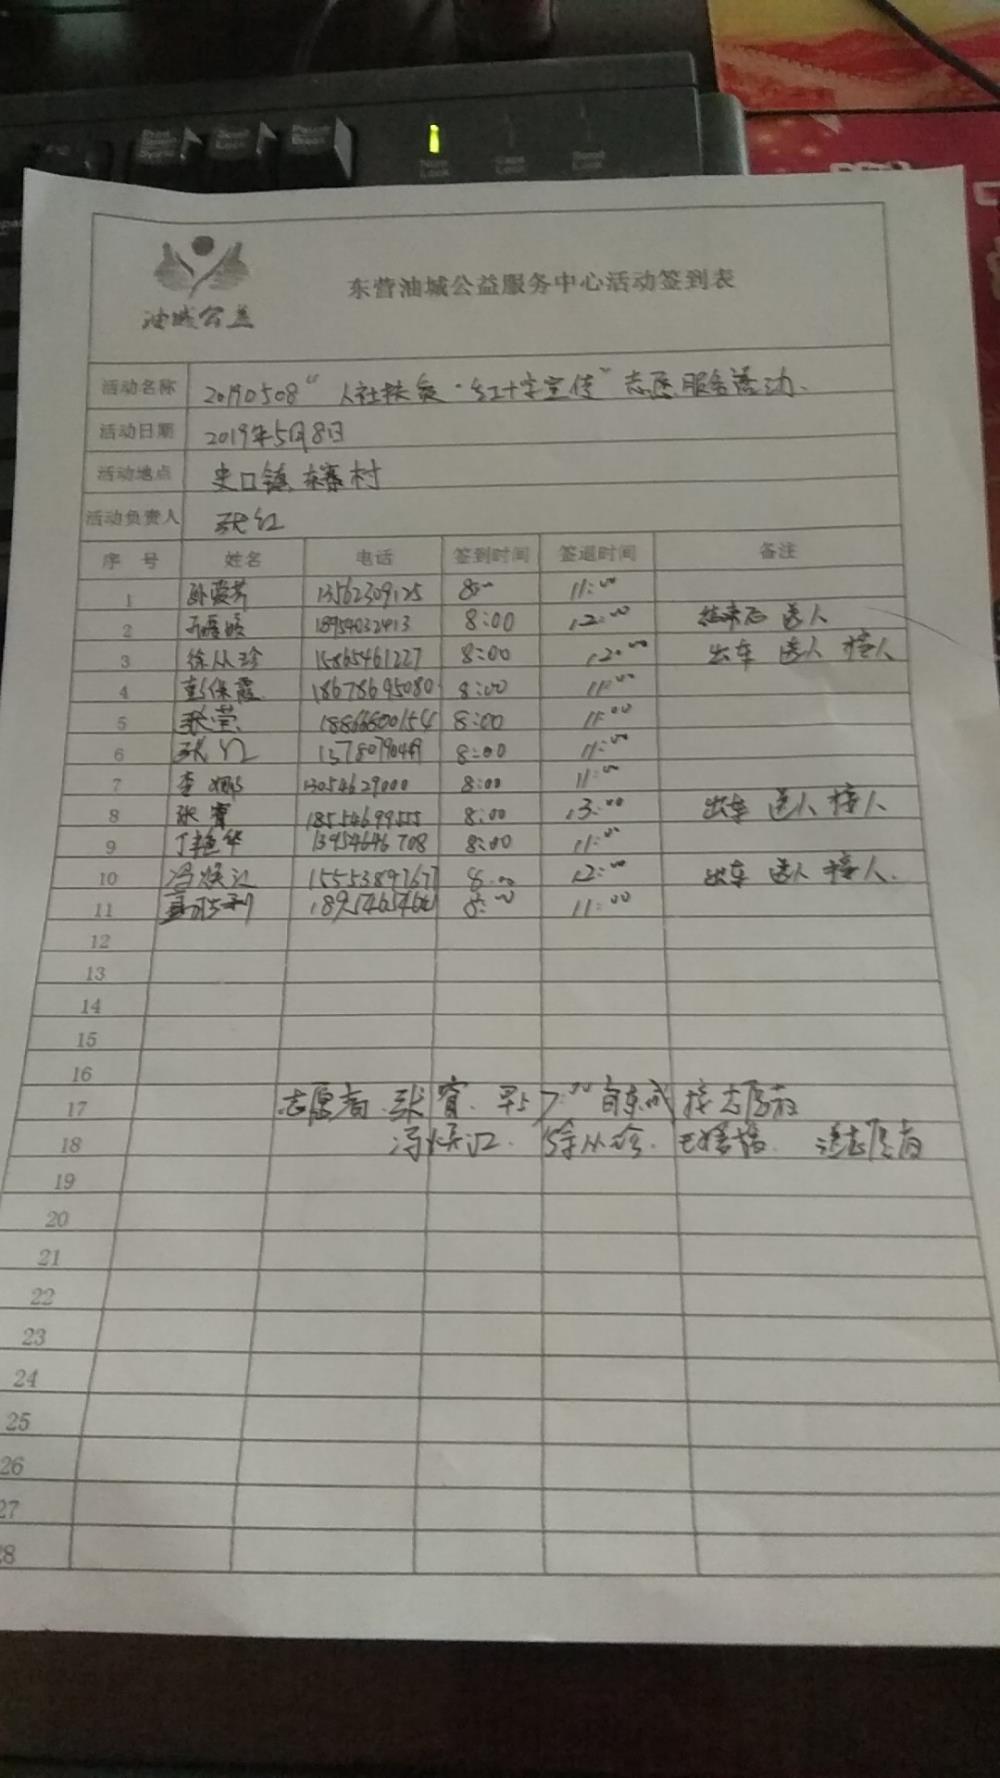 Num Lock
油城公益
东营油城公益服务中心活动签到表
活动名称 20190508“人社扶贫·红十字宣传”志愿服务活动.
活动日期 2019年5月8日
活动地点 史口镇东寨村
活动负责人 张红
序号 姓名 电话 签到时间 签退时间 备注
1 13562309125 8:00 11:00
2 18954032413 8:00 12:00 结束后 送人
3 徐从珍 15865461227 8:00 12:00 出车 送人 接人
4 彭保霞 18678695080 8:00 11:00
5 张莹 18866600154 8:00 11:00
6 张江 8:00 11:00
7 李娜 13054629000 8:00 11:00
8 张賓 18554699555 8:00 13:00 出车 送人 接人
9 丁艳华 8:00 11:00
10 冯焕江 15553897677 8:00 12:00 出车 送人 接人.
11 8:00 11:00
12
13
14
15
16
17 志愿者 张賓. 早上7:00 自东城 接志愿者
18 冯焕江. 徐从珍. 送志愿者
19
20
21
22
23
24
25
26
27
28